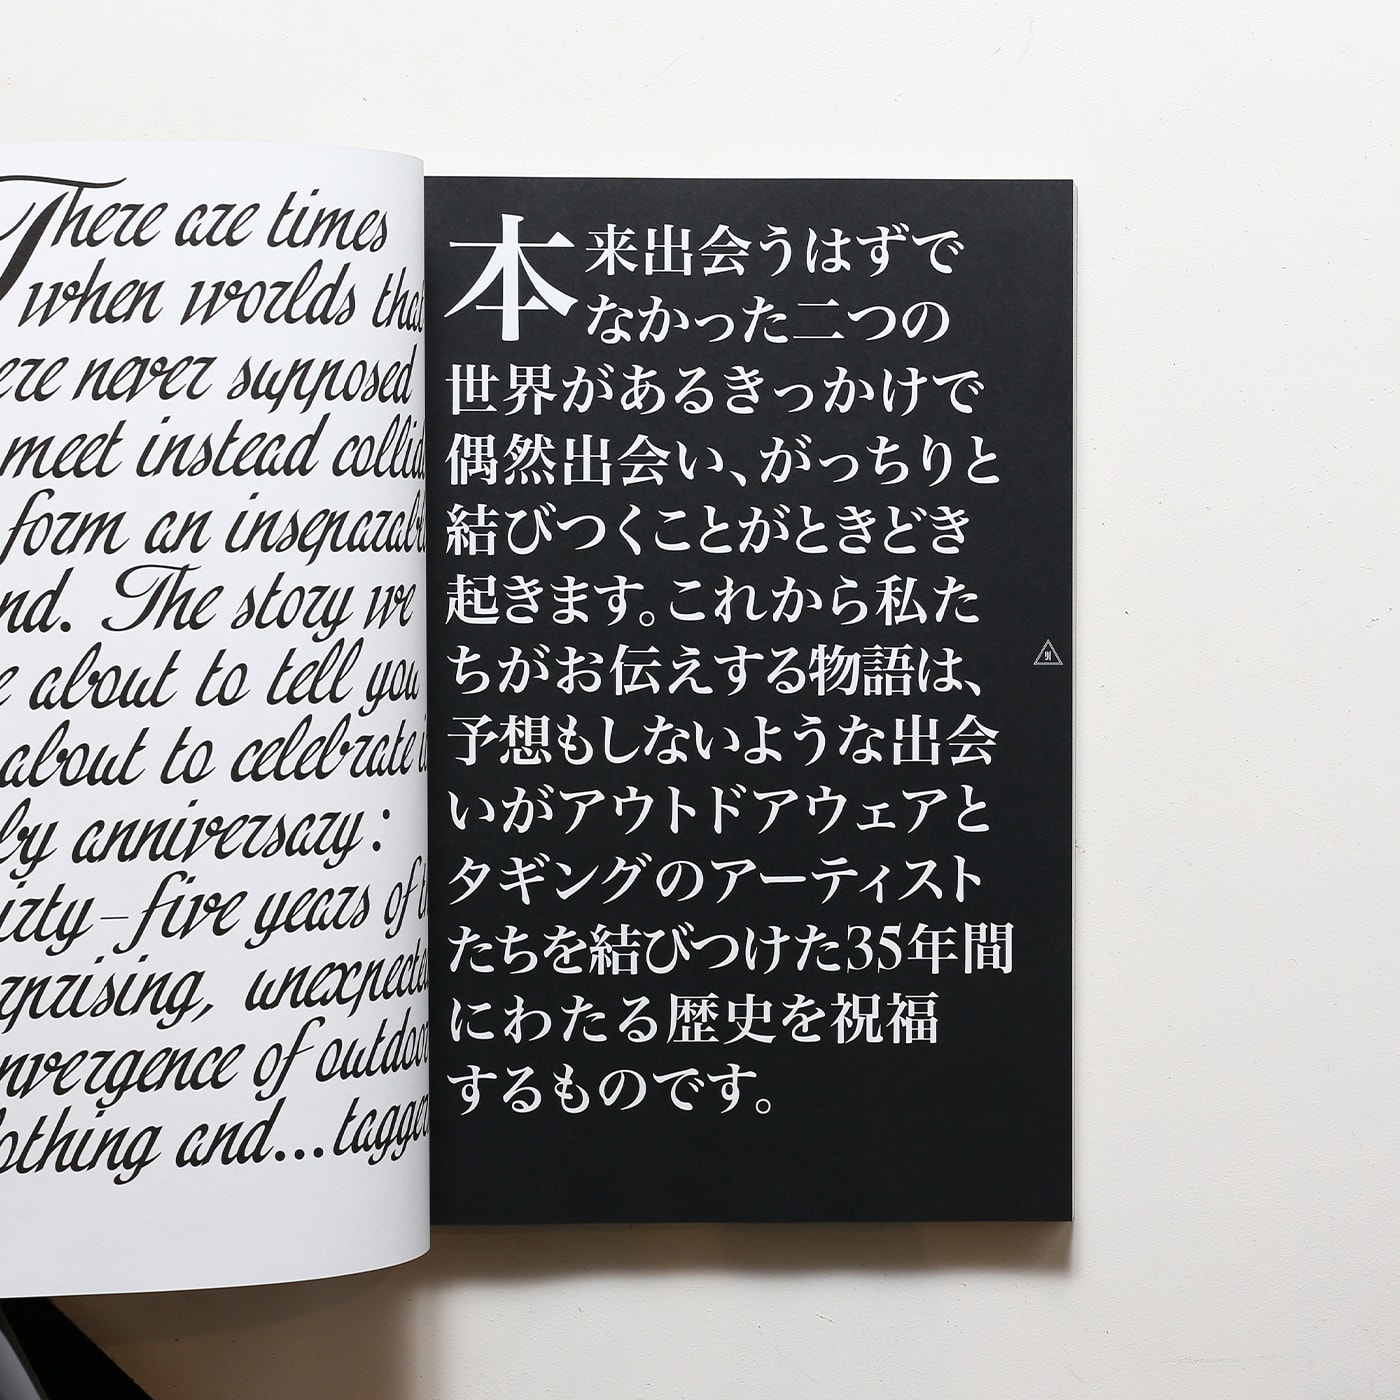 There are times
when worlds
never supposed
meet instead
form an
The story we
about to tell you
about to celebrate
by anniversary:
five years of
and...
本来出会うはずで
なかった二つの
世界があるきっかけで
偶然出会い、がっちりと
結びつくことがときどき
起きます。これから私た
ちがお伝えする物語は、
予想もしないような出会
いがアウトドアウェアと
タギングのアーティスト
たちを結びつけた35年間
にわたる歴史を祝福
するものです。